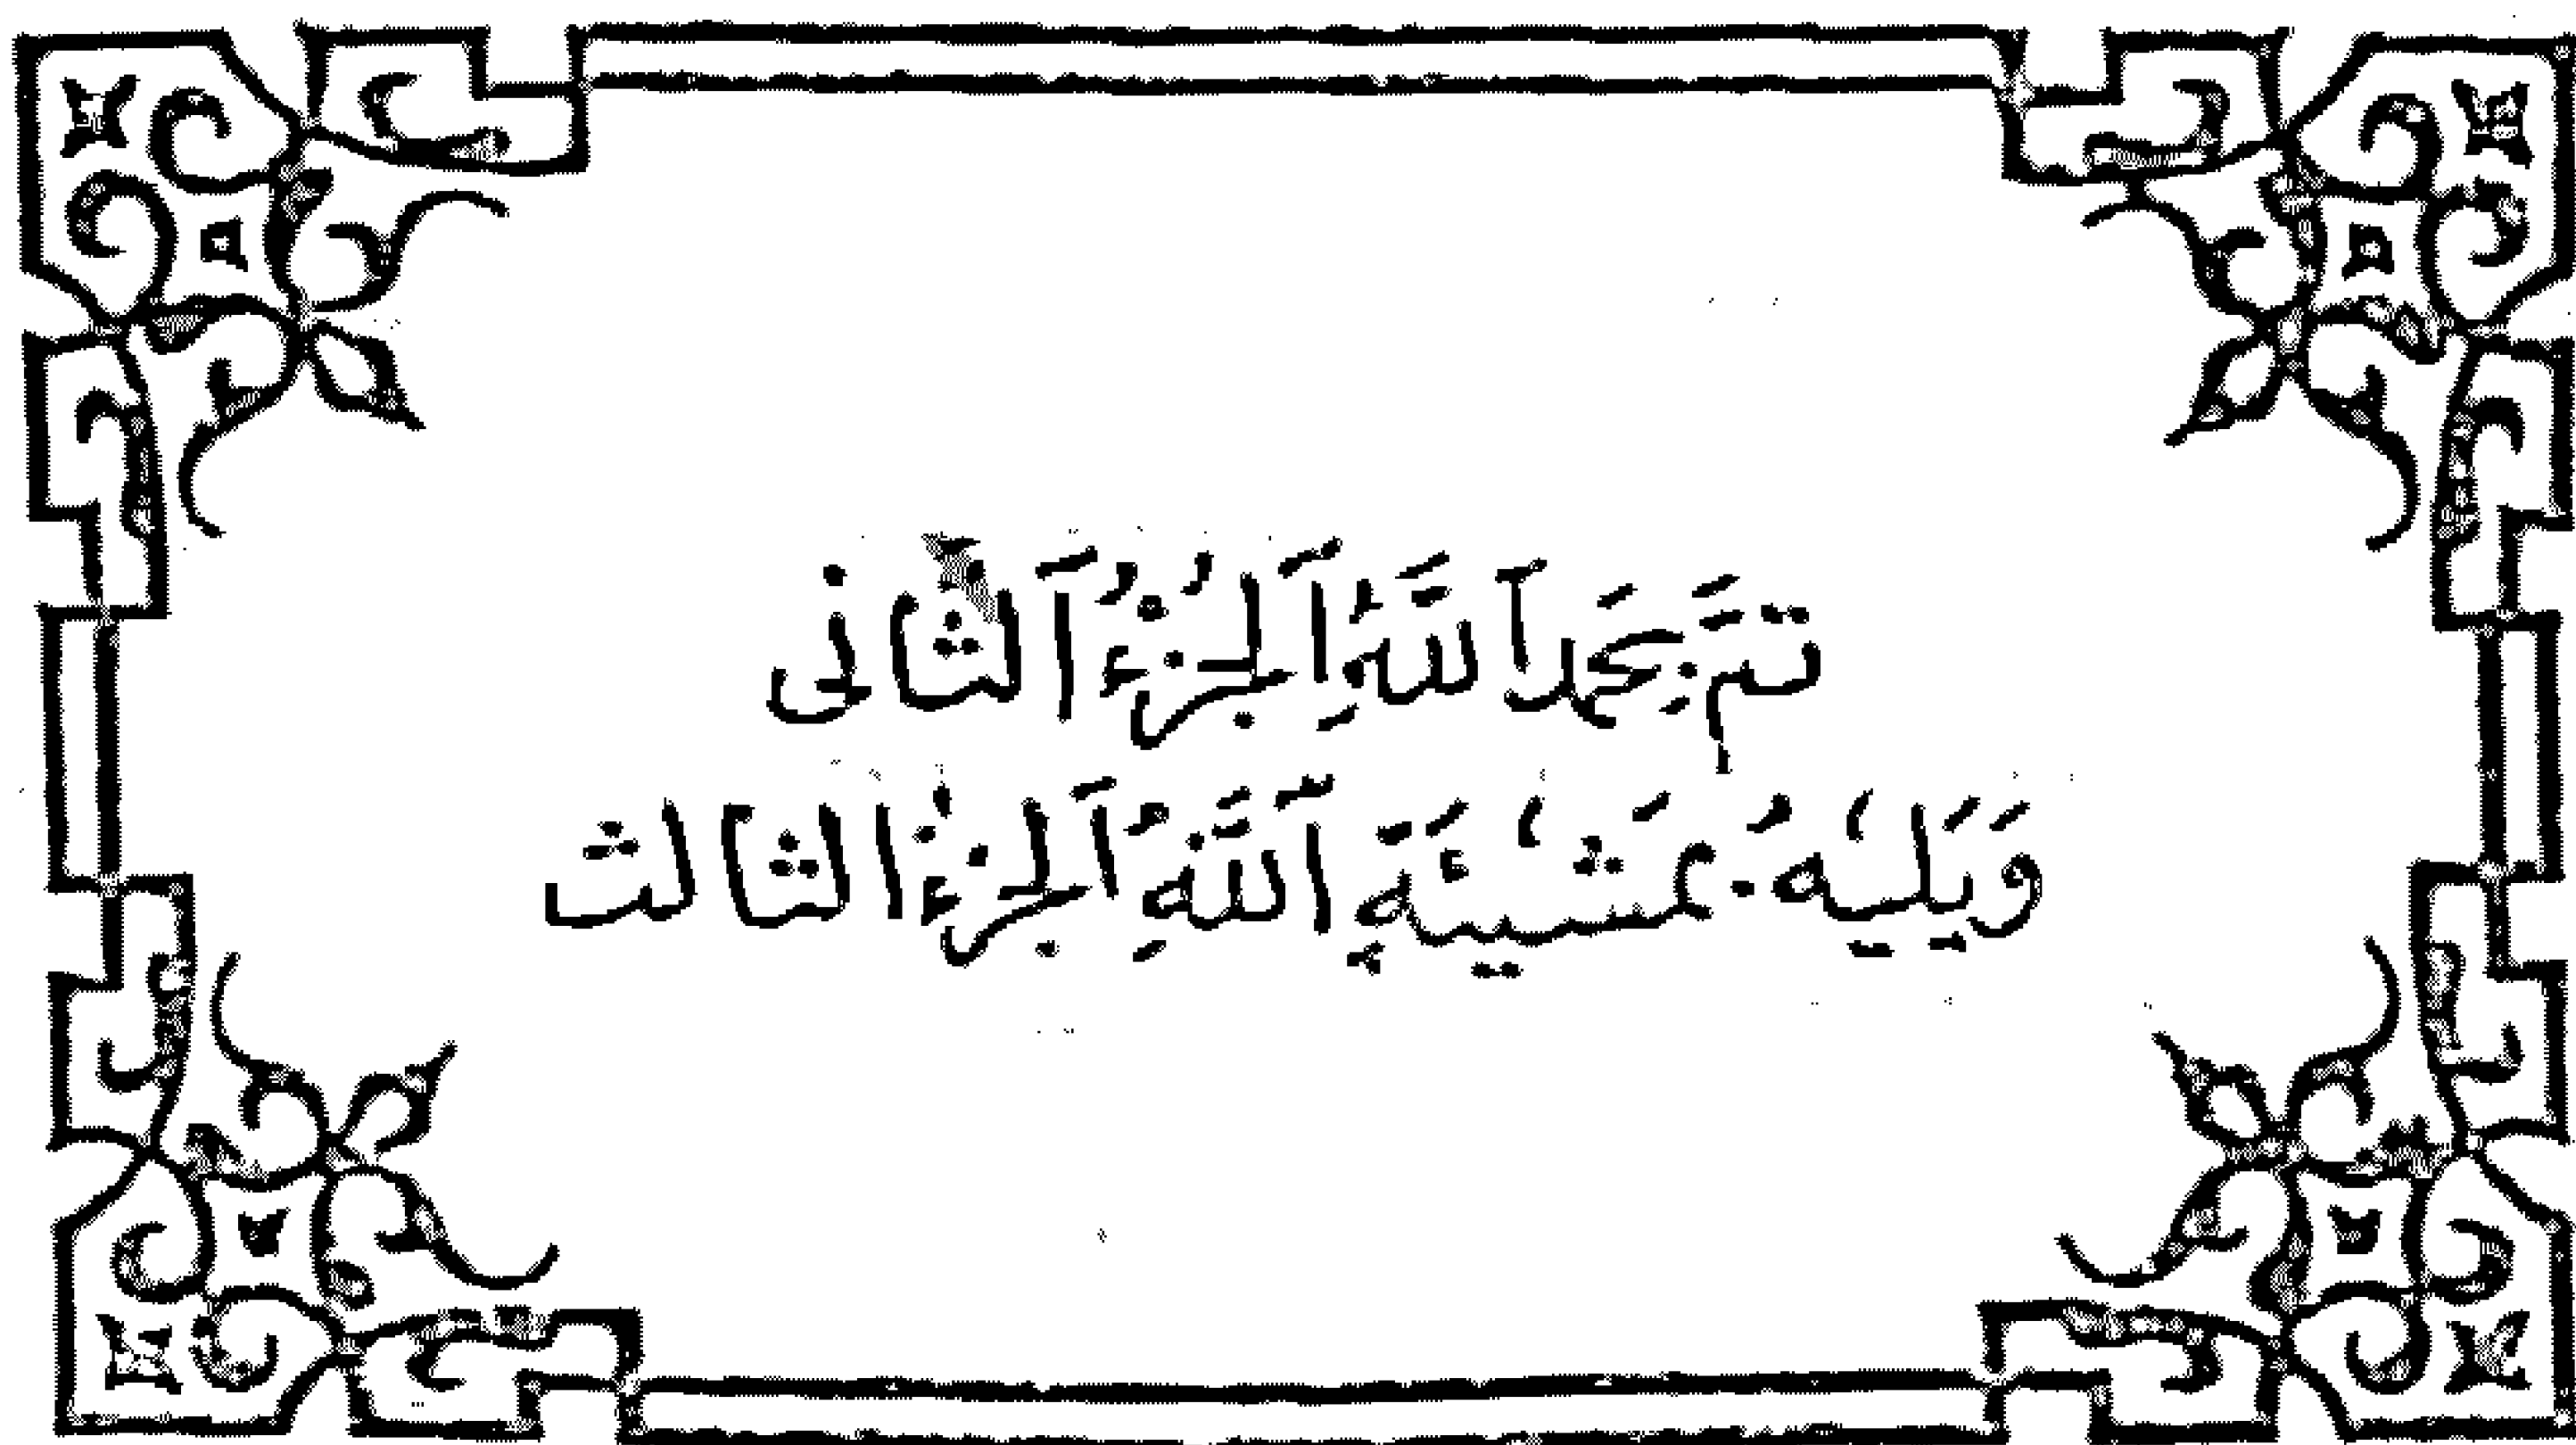 تمَّ بِحَمدِ اللَّهِ الجُزْءُ الثانى
وَيَلِيْهُ بمَشْيئَةِ اللَّهِ الجُزْءُ الثالث